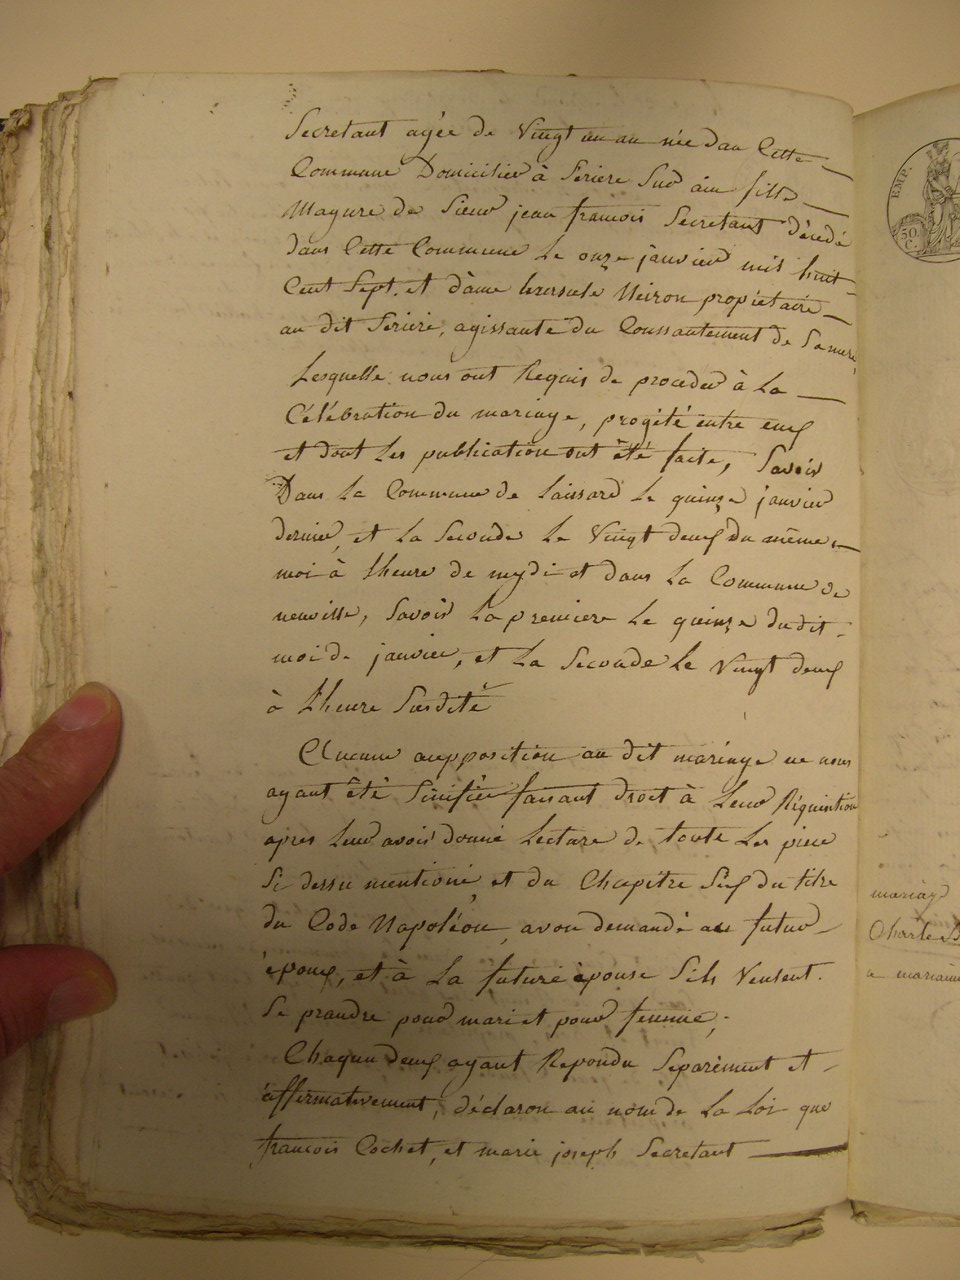 Secretant agée de Vingt un an née dan Cette
Commune Domiciliée à Seriere Sur ain fille
Mageure de Sieur jean francois Secretant décedé
dans Cette Commune Le onze janvier mil huit
Cent Sept. et dame Ursule Meiron propriétaire
au dit Seriere, agissante du Conssantement de Samere,
Lesquelle nous ont Requis de proceder à La
Célébration du mariage, progété entre eux
et dont Les publication ont été faite, Savoir
Dans La Commune de Laissard Le quinze janvier
dernier, et La Seconde Le Vingt deux du même
moi à Lheure de mydi et dans La Commune de
neuville, Savoir La premiere Le quinze dudit
moi de janvier, et La Seconde Le Vingt deux
à Lheure Susdite
Aucune aupposition au dit mariage ne nous
ayant été Sinifiée faisant droit à Leur Réquisition
apres Leur avoir donné Lecture de toute Les piece
Si dessu mentioné et du Chapitre Six du titre
du Code Napoléon, avon demandé au futur
époux, et à La future épouse Sils Veulent
Se prandre pour mari et pour femme,
Chaqun deux ayant Repondu Separément et
affirmativement, déclaron au nom de La Loi que
francois Cochet, et marie joseph Secretant
EMP.
50
C.
mariag
Charle
a marianne